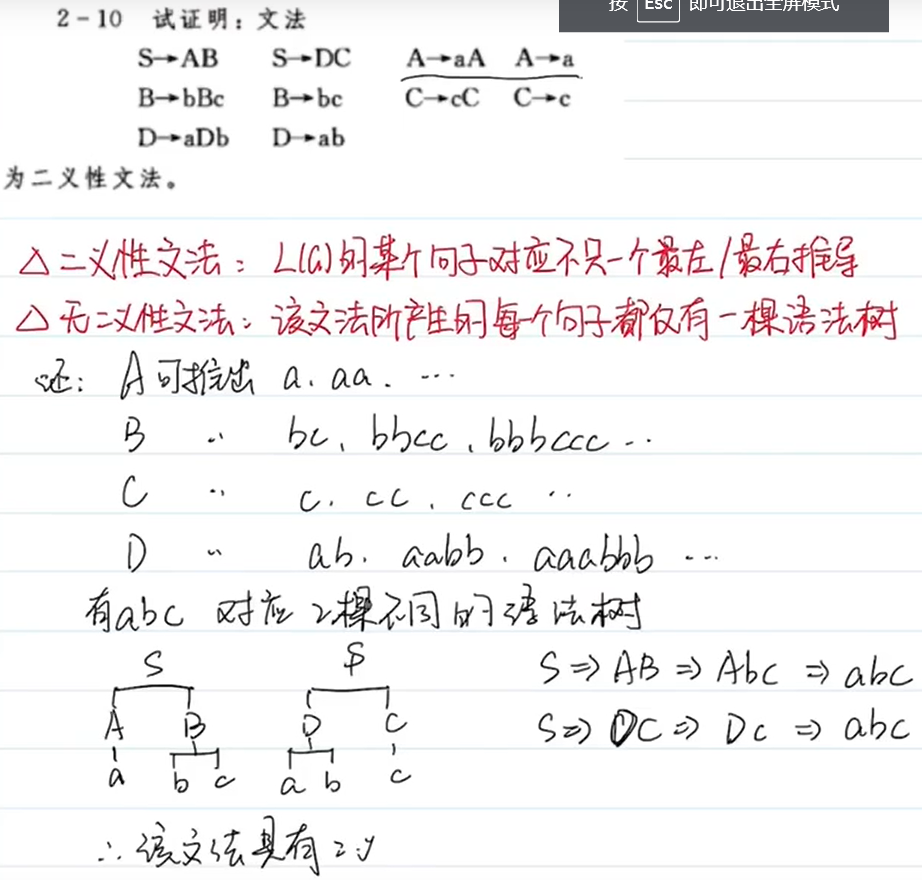 按 Esc 即可退出全屏模式
2-10 试证明：文法
S→AB S→DC A→aA A→a
B→bBc B→bc C→cC C→c
D→aDb D→ab
为二义性文法。
△二义性文法：L(G)的某个句子对应不只一个最左/最右推导
△无二义性文法：该文法所产生的每个句子都仅有一棵语法树
证：A可推出 a、aa、…
B 〃 bc、bbcc、bbbccc …
C 〃 c、cc、ccc …
D 〃 ab、aabb、aaabbb …
有abc 对应2棵不同的语法树
S S S⇒AB⇒Abc⇒abc
A B D C S⇒DC⇒Dc⇒abc
a b c a b c
∴该文法具有二义